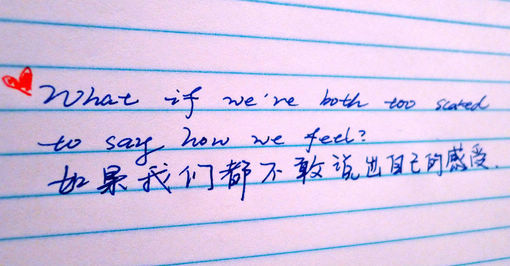 What if we're both too scared
to say how we feel?
如果我们都不敢说出自己的感受.